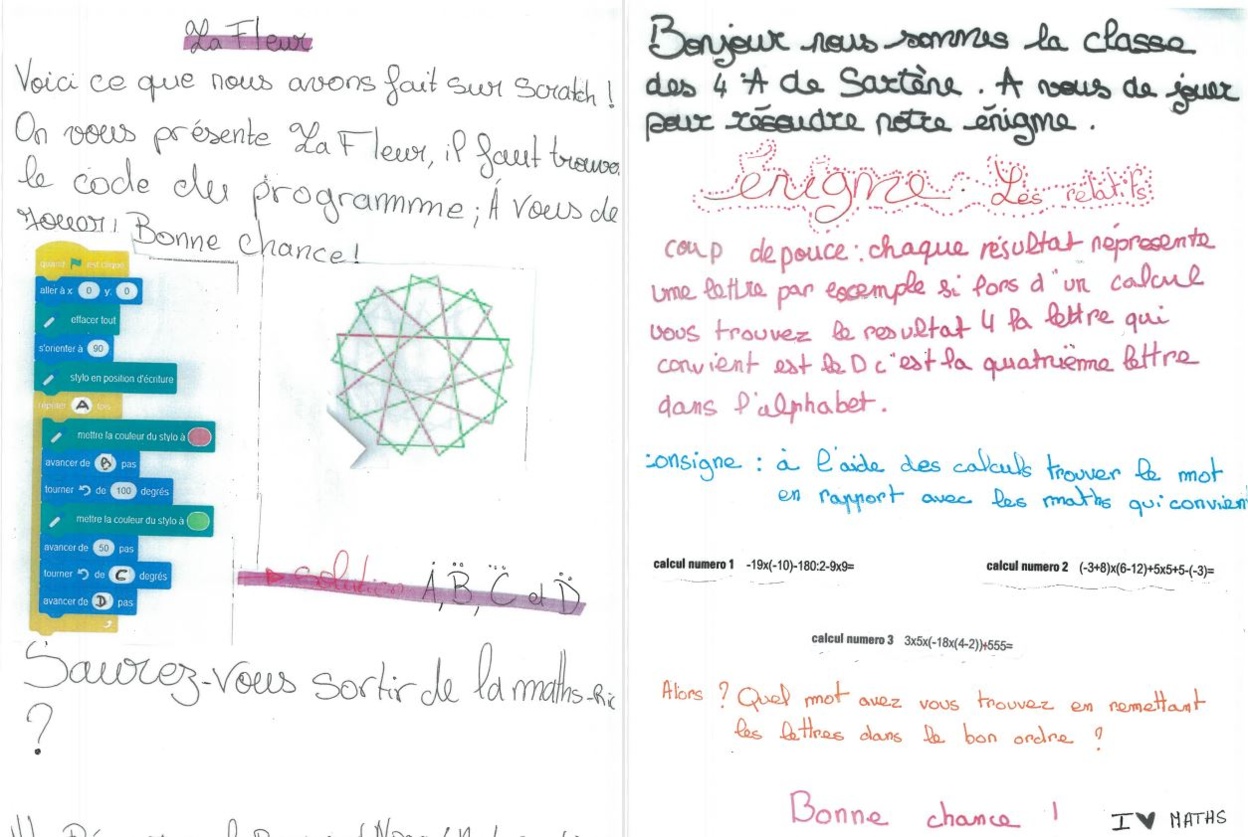 La Fleur
Voici ce que nous avons fait sur Scratch !
On vous présente La Fleur, il faut trouver
le code du programmme ; À vous de
Jouer ! Bonne chance !
quand est cliqué
aller à x 0 y 0
effacer tout
s'orienter à 90
stylo en position d'écriture
répéter A fois
mettre la couleur du stylo à
avancer de B pas
tourner de 100 degrés
mettre la couleur du stylo à
avancer de 50 pas
tourner de C degrés
avancer de D pas
Solution A, B, C et D
Saurez-vous sortir de la maths-Ric
?
Bonjour nous sommes la classe
des 4 A de Sartène. A vous de jouer
pour résoudre notre énigme.
énigme : Les relatifs
coup de pouce : chaque résultat réprésente
une lettre par exemple si lors d'un calcul
vous trouvez le resultat 4 la lettre qui
convient est le D c'est la quatrième lettre
dans l'alphabet.
consigne : à l'aide des calculs trouver le mot
en rapport avec les maths qui convient
calcul numero 1 -19x(-10)-180:2-9x9=
calcul numero 2 (-3+8)x(6-12)+5x5+5-(-3)=
calcul numero 3 3x5x(-18x(4-2))+555=
Alors ? Quel mot avez vous trouvez en remettant
les lettres dans le bon ordre ?
Bonne chance !
I ♥ MATHS